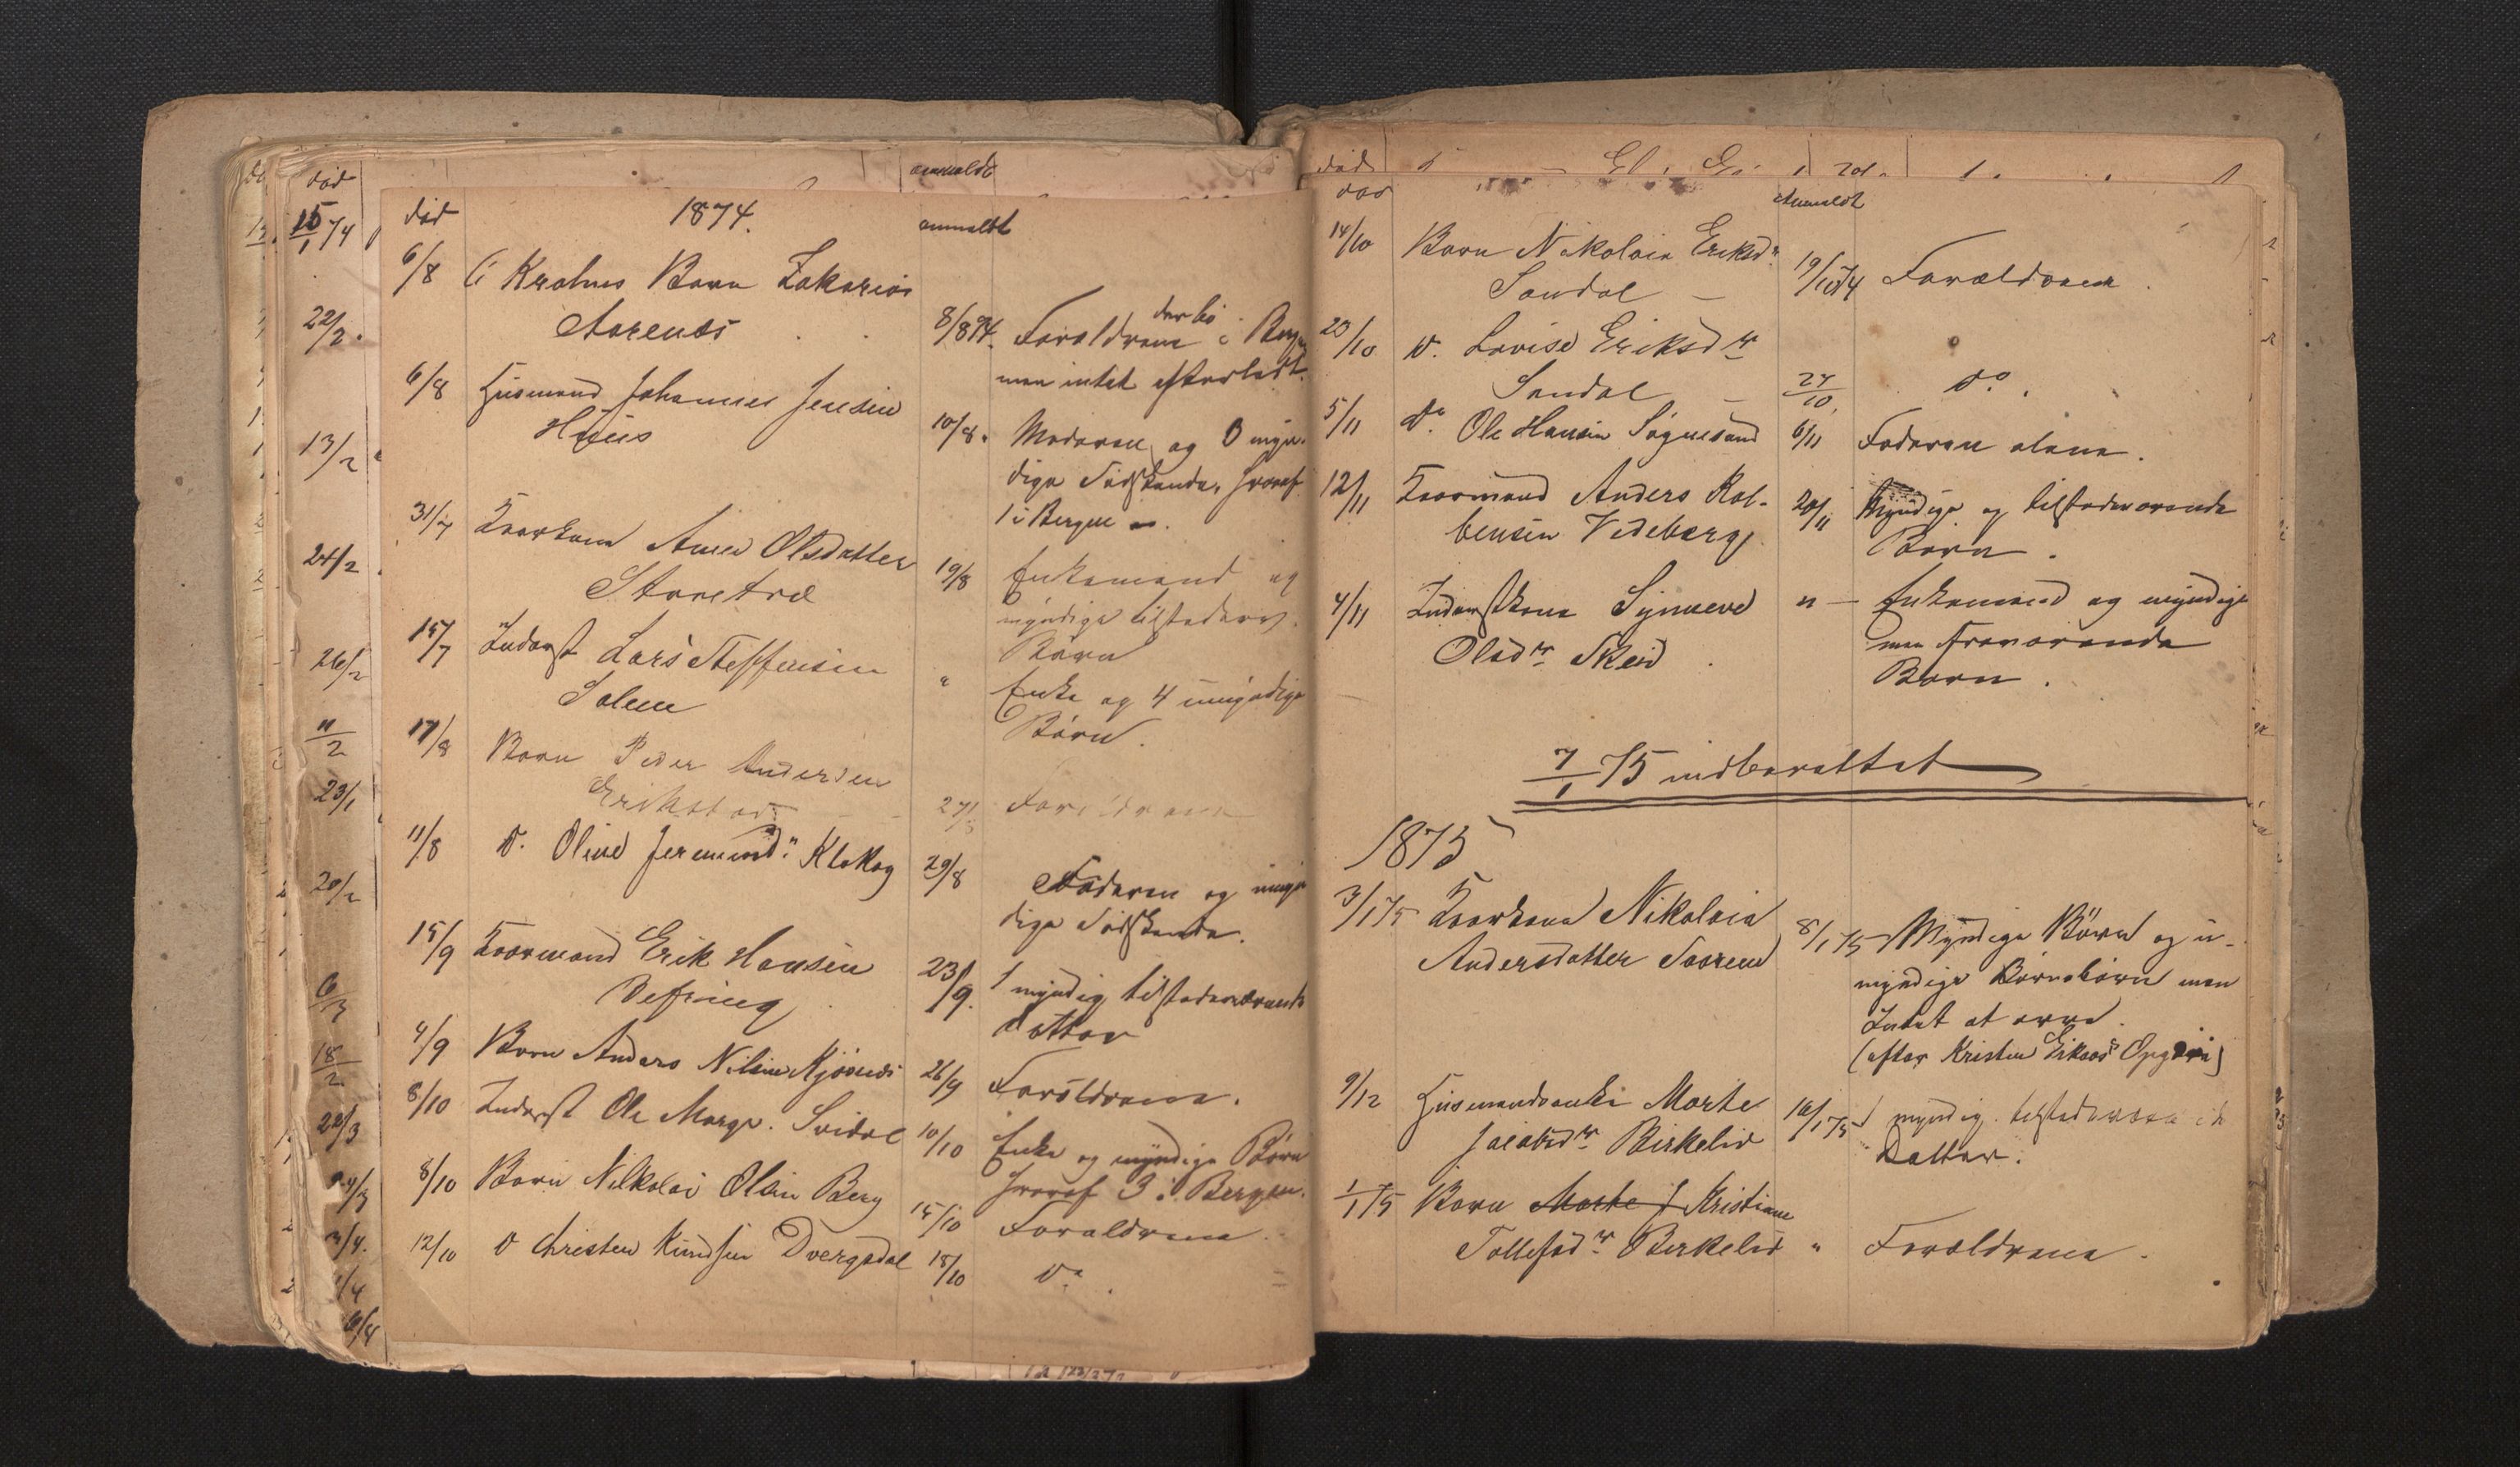 død
15/1 74
22/2.
13/2
24/2.
26/2
11/2
23/1
20/2
6/3
18/2
22/3
24/3
3/4.
1/4
6/4
anmeldt
død 1874. anmeldt
6/8 Barn Zakarias
Aarenæs
8/8 74. Forældrene i Bergen
der bo
men intet efterladt.
6/8 Husmand Johannes Jensen
Huus
10/8. Moderen og 6 myn-
dige Sødskende, hvoraf
1 i Bergen
31/7 Kaarkone Anne Olsdatter
Storetræ
19/8 Enkemand og
myndige tilstedevær.
Børn
15/7 Inderst Lars Steffensen
Solem
" Enke og 4 umyndige
Børn.
17/8 Barn Peder Andersen
Erikstad
27/8 Forældrene
11/8 Do. Oline Jeremiasd. Klokog
29/8 Faderen og umyn
dige Sødskende.
15/9 Kaarmand Erik Hansen
Defring
23/9. 1 myndig tilstedeværende
Datter
4/9 Barn Anders Nilsen Mjøsnæs
26/9 Forældrene.
8/10 Inderst Ole Svidal
10/10 Enke og myndige Børn
hvoraf 3 i Bergen.
8/10 Barn Nikolai Olsen Berg
15/10 Forældrene.
12/10 Do Christen Knudsen Dvergsdal
18/10 Do.
død anmeldt
14/10 Barn Nikolaia Eriksdr
Sandal
19/10 74 Forældrene.
23/10 Do. Lovise Eriksdtr
Sandal
24/10. Do.
5/11 Do Ole Hansen Søgnesand
6/11 Faderen alene.
12/11 Kaarmand Anders Kol-
bensen Vedeberg
20/11 Myndige og tilstedeværende
Børn.
4/11 Inderstkone Synneve
Olsdtr Skeid.
" — Enkemand og myndige
men fraværende
Børn.
7/1 75 indberettet
1875
3/1 75 Kaarkone Nikolaia
Andersdatter Taarem
8/1 75 Myndige Børn og u-
myndige Børnebørn men
Intet at arve.
(efter Kristen Eikaas's Opgave)
9/12 Husmandsenke Marte
Jacobsdtr Birkelid
16/1 75 1 myndig tilstedeværende
Datter.
1/1 75 Barn Marte J Kristiane
Tollefsdtr Birkelid " Forældrene.